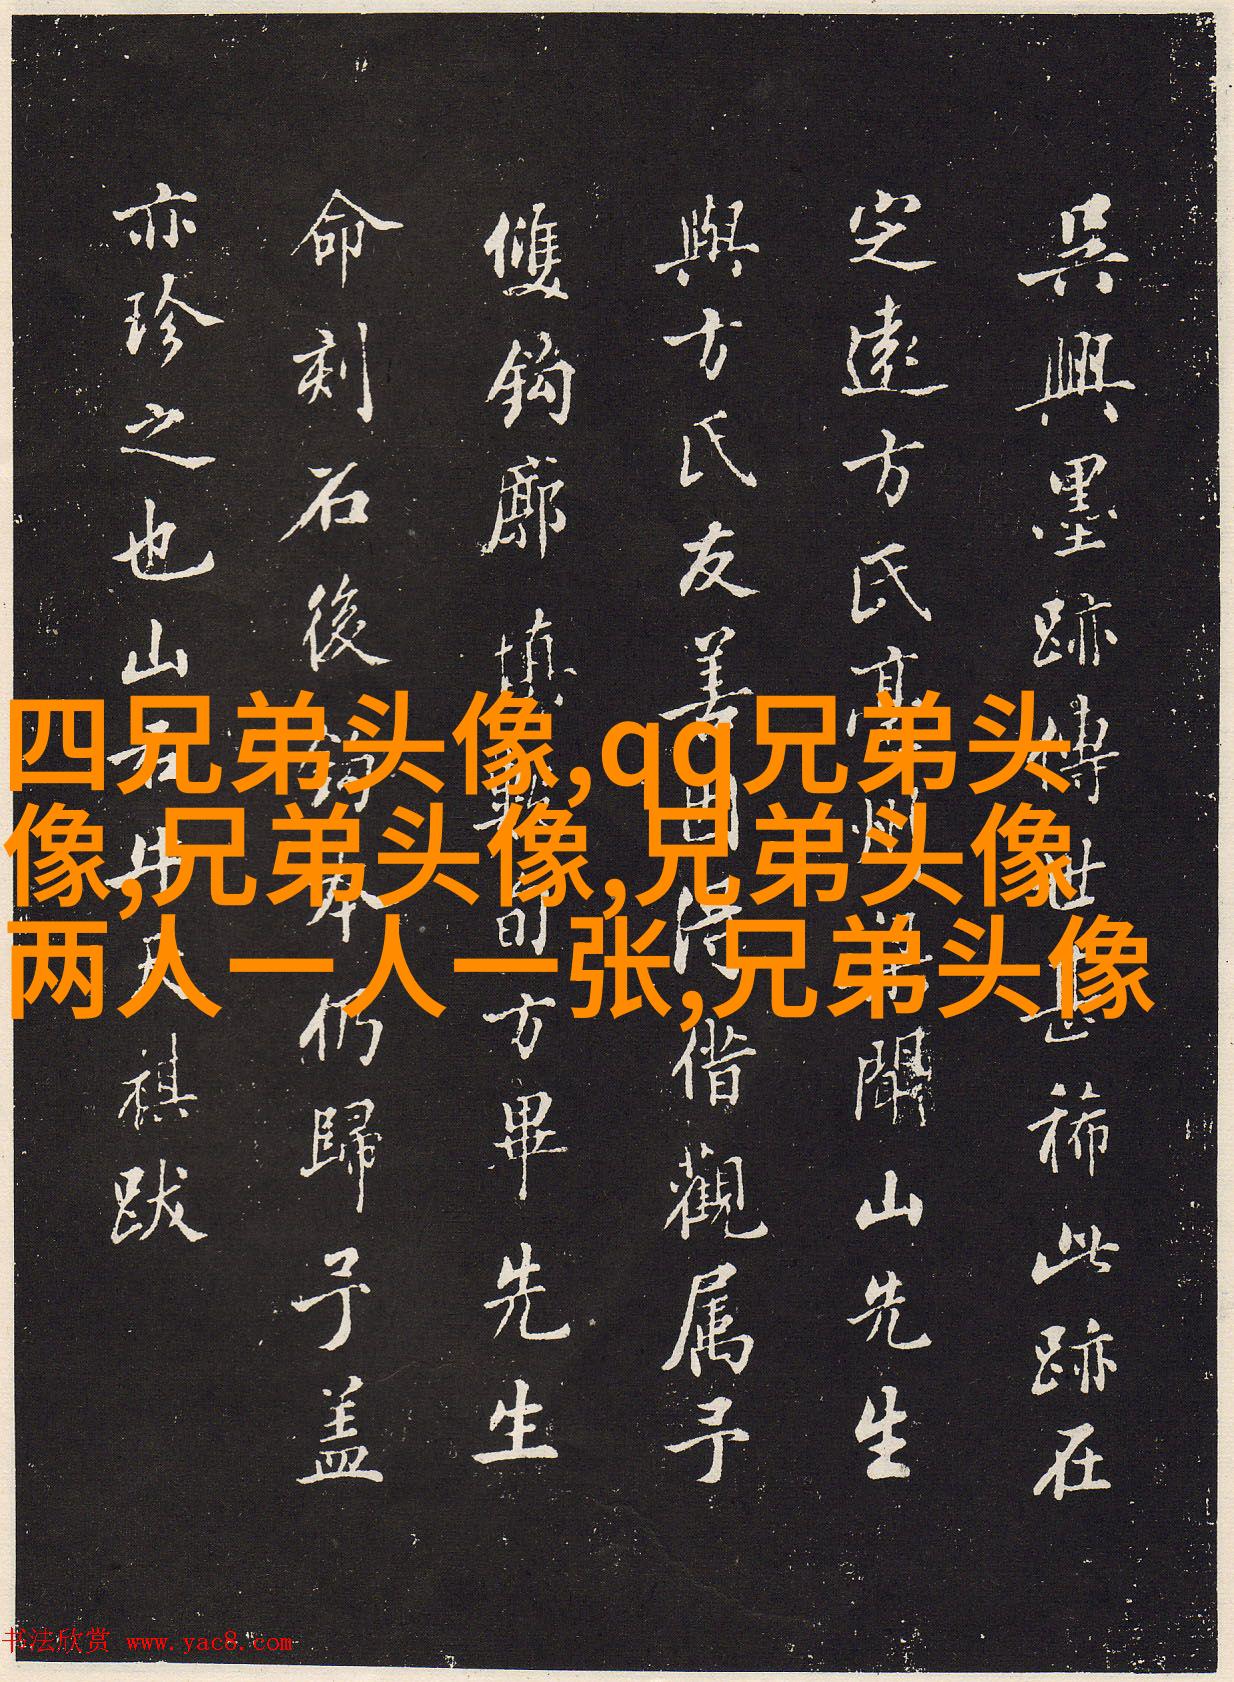 吳興墨跡傳世甚稀此跡在
定遠方氏
聞山先生
與方氏友善
借觀属予
雙鈎廓填
旬方畢先生
命刻石後
仍歸予盖
亦珍之也山
祺跋
四兄弟头像,qq兄弟头
像,兄弟头像,兄弟头像
两人一人一张,兄弟头像
书法欣赏 www.yac8.com